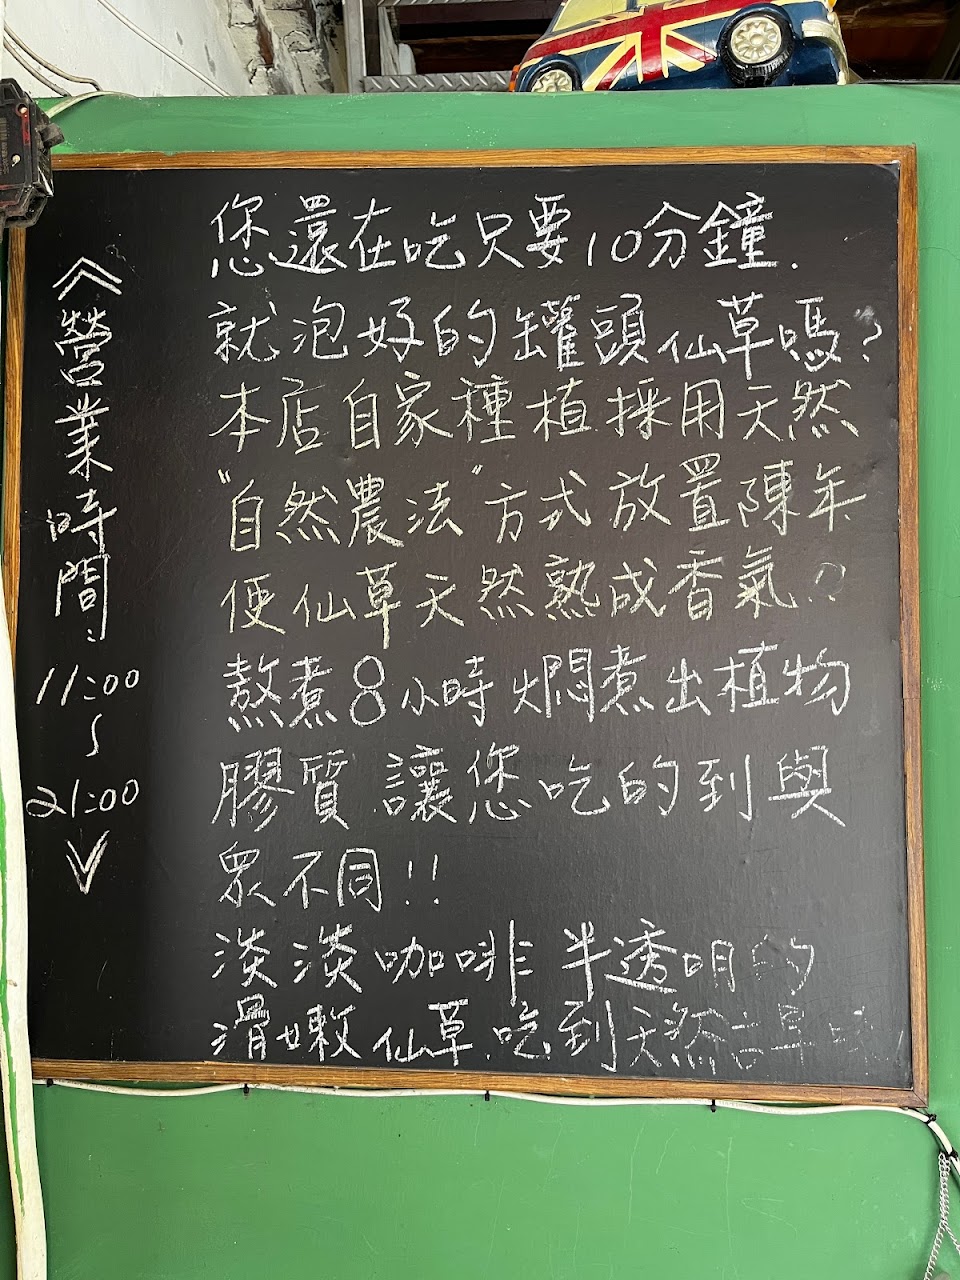 您還在吃只要10分鐘.
就泡好的罐頭仙草嗎"?
本店自家種植採用天然
"自然農法"方式放置陳年
使仙草天然熟成香氣。
熬煮8小時燜煮出植物
膠質 讓您吃的到與
眾不同!!
淡淡咖啡半透明的
滑嫩仙草.吃到天然古早味
︽營業時間:
11:00
~
21:00
﹀